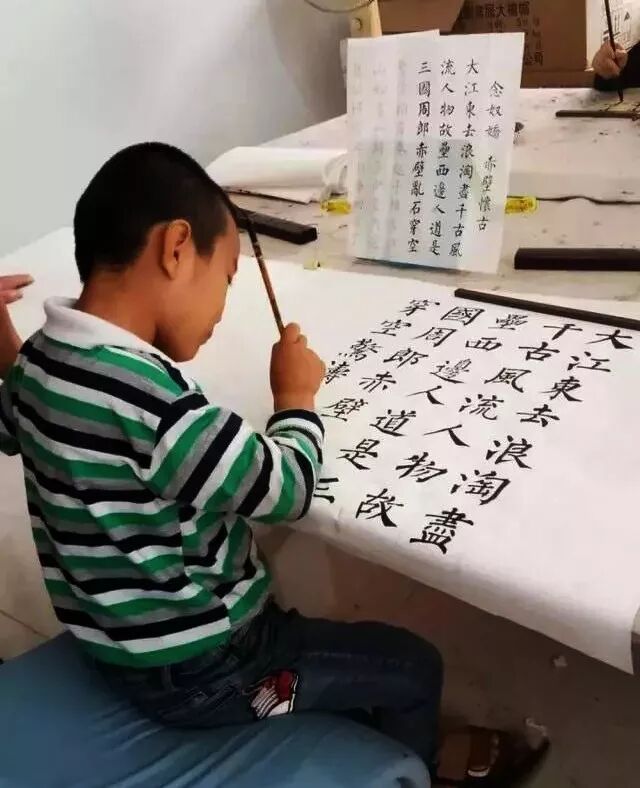 念奴嬌 赤壁懷古
大江東去浪淘盡千古風
流人物故壘西邊人道是
三國周郎赤壁亂石穿空
大江東去浪淘盡
千古風流人物故
壘西邊人道是三
國周郎赤壁
穿空驚濤